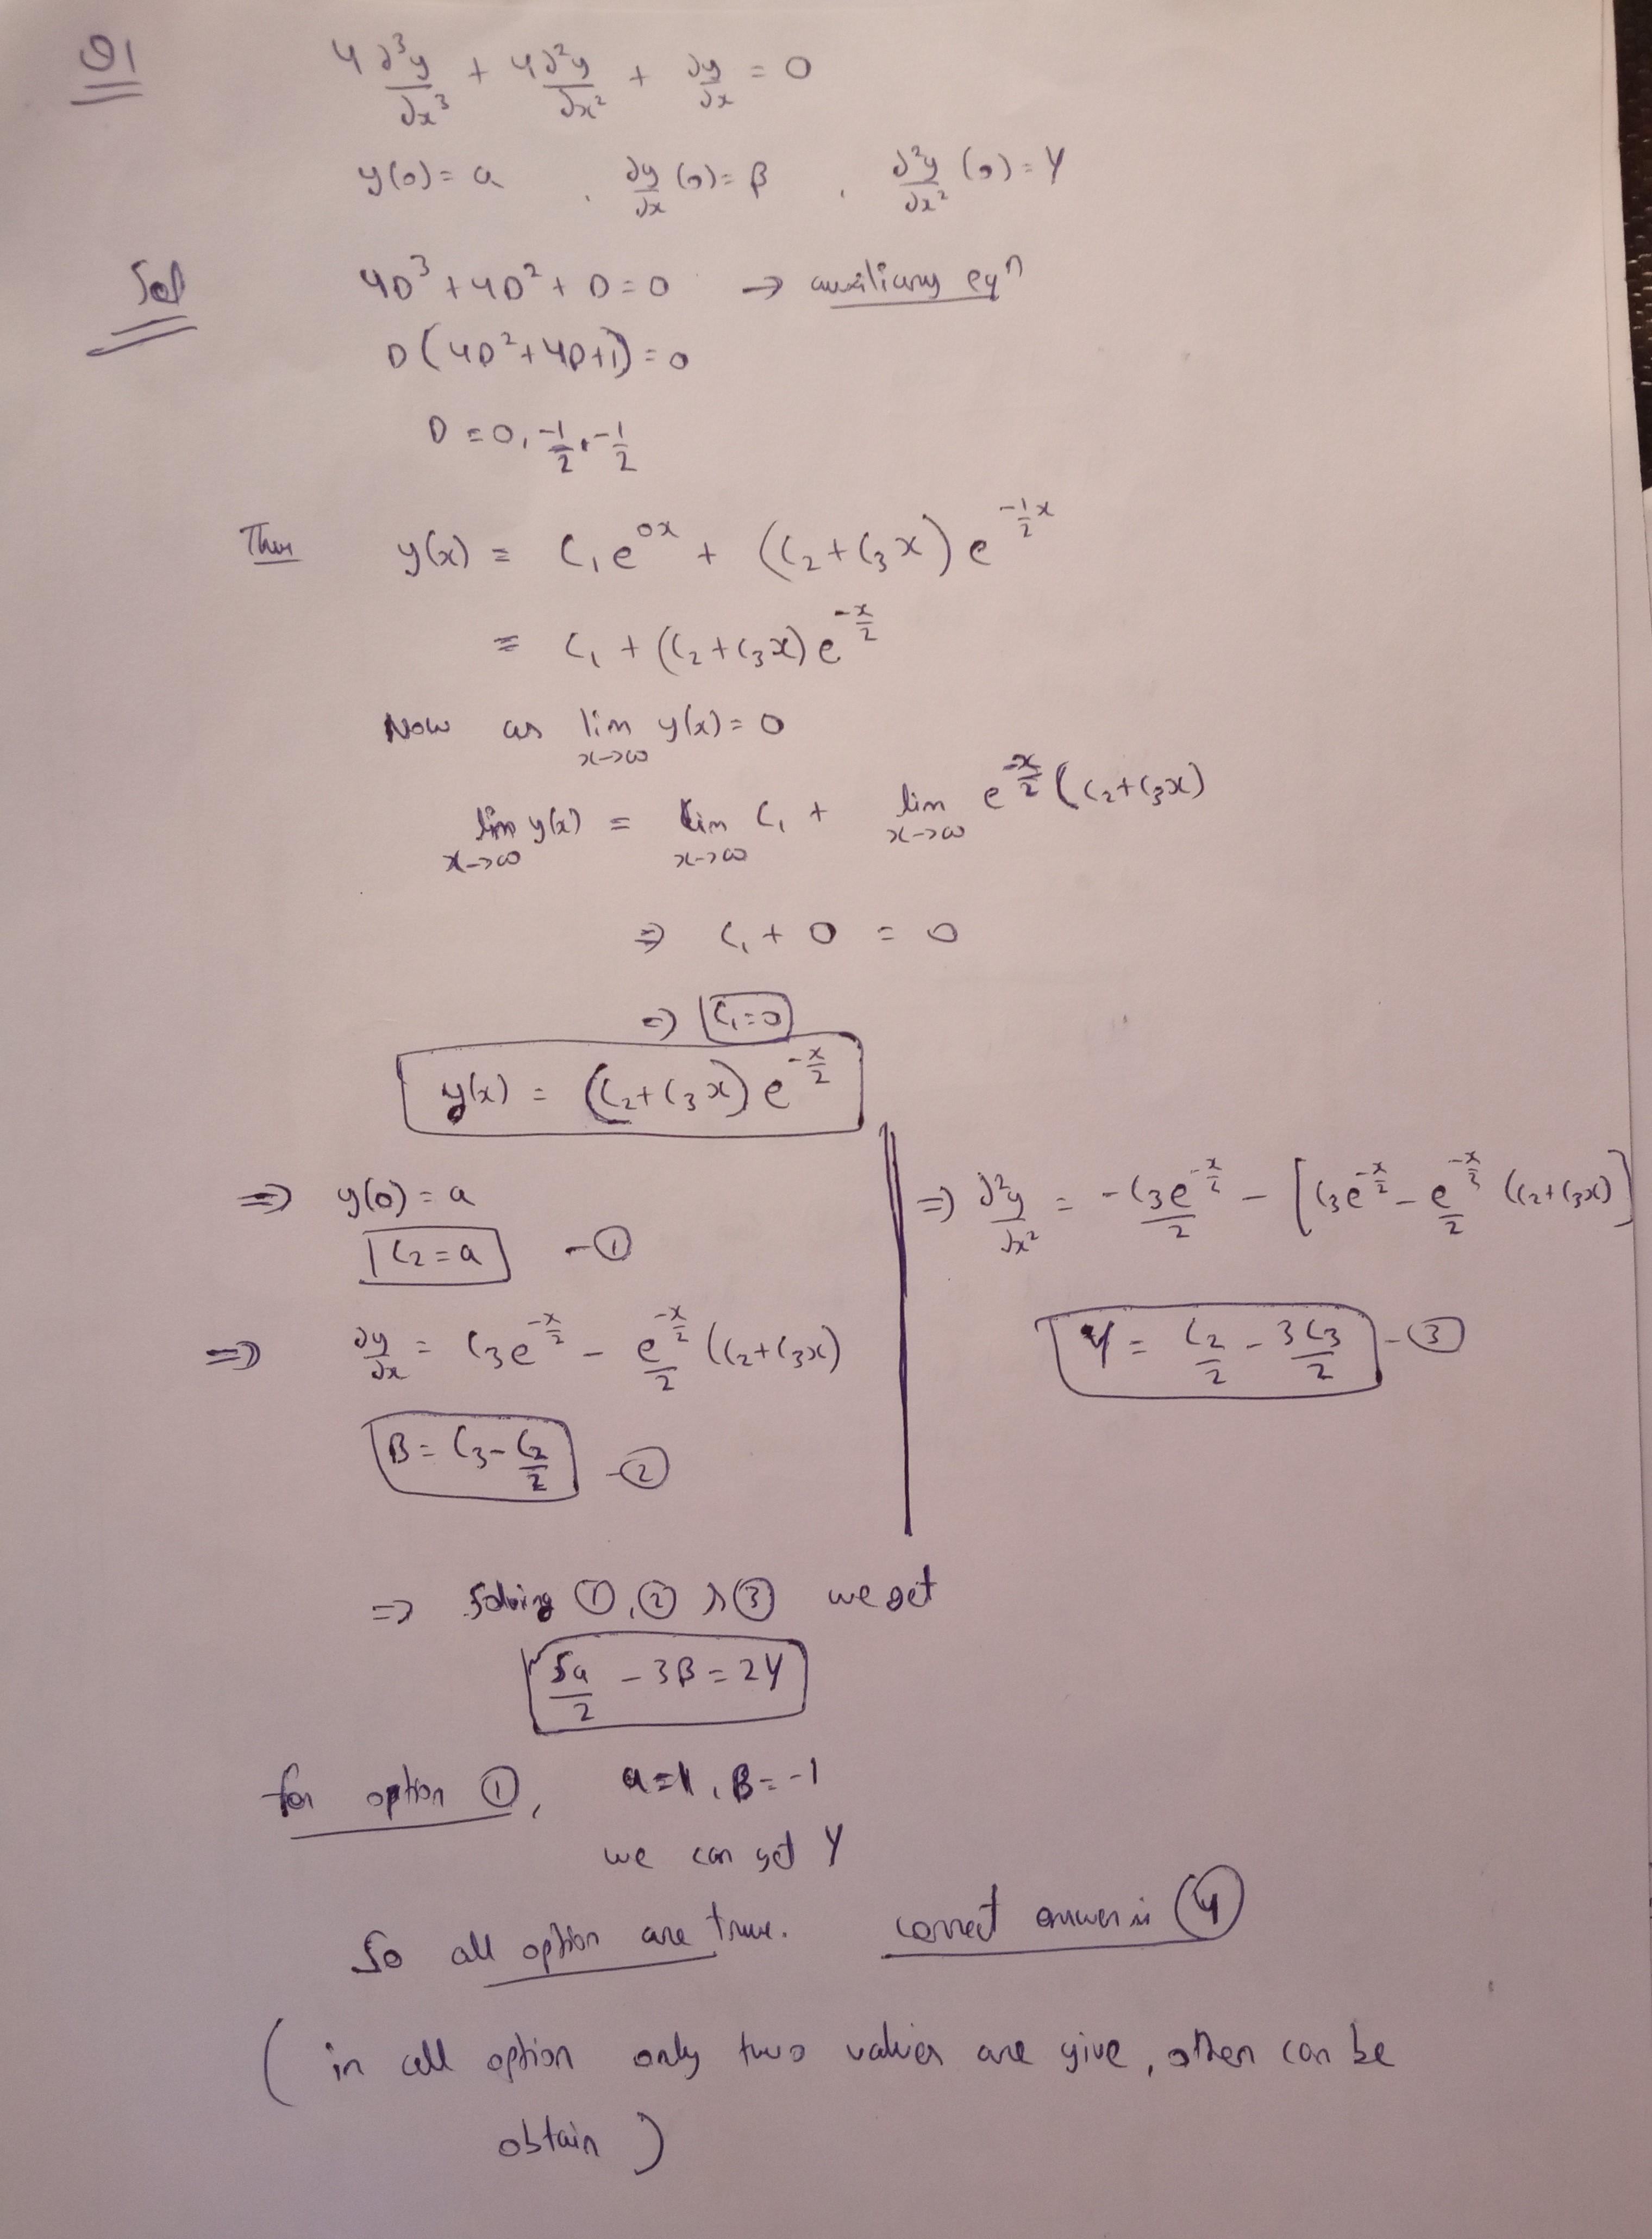 Q1
4 ∂³y/∂x³ + 4∂²y/∂x² + ∂y/∂x = 0
y(0) = a , ∂y/∂x (0) = β , ∂²y/∂x² (0) = γ
Sol 4D³ + 4D² + D = 0 → auxiliary eqⁿ
D(4D² + 4D + 1) = 0
D = 0, -1/2, -1/2
Then y(x) = C₁e^(0x) + (C₂ + C₃x) e^(-1/2 x)
= C₁ + (C₂ + C₃x) e^(-x/2)
Now as lim x→∞ y(x) = 0
lim x→∞ y(x) = lim x→∞ C₁ + lim x→∞ e^(-x/2) (C₂ + C₃x)
⇒ C₁ + 0 = 0
⇒ C₁ = 0
y(x) = (C₂ + C₃x) e^(-x/2)
⇒ y(0) = a
C₂ = a - ①
⇒ ∂y/∂x = C₃e^(-x/2) - e^(-x/2)/2 (C₂ + C₃x)
β = C₃ - C₂/2 - ②
⇒ ∂²y/∂x² = -C₃e^(-x/2)/2 - [C₃e^(-x/2) - e^(-x/2)/2 (C₂ + C₃x)]
γ = C₂/2 - 3C₃/2 - ③
⇒ Solving ①, ② & ③ we get
5a/2 - 3β = 2γ
for option ①, a = 1, β = -1
we can get γ
So all option are true. correct answer is ④
(in all option only two values are give, other can be
obtain)